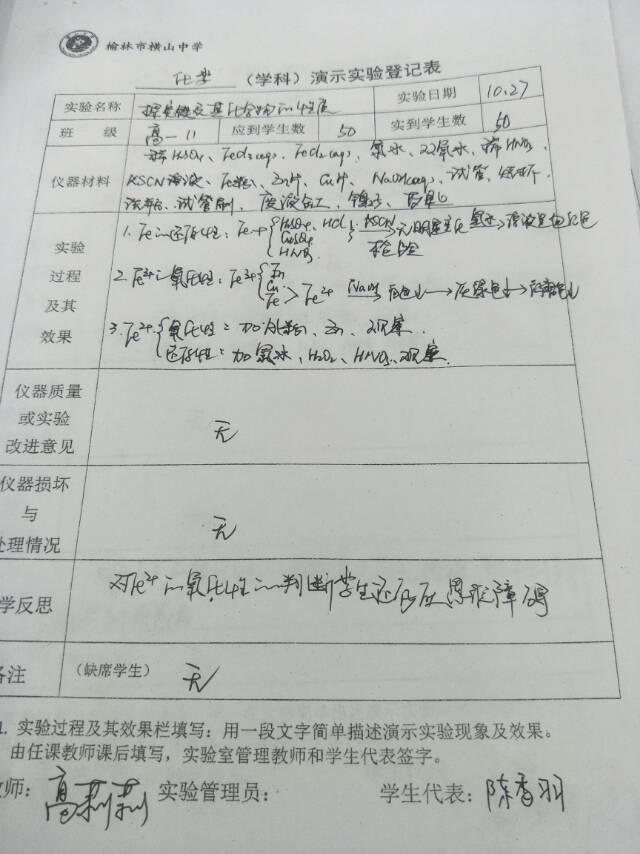 榆林市横山中学
化学 (学科) 演示实验登记表
实验名称 探究铁及其化合物的性质 实验日期 10.27
班 级 高一11 应到学生数 50 实到学生数 50
稀H₂SO₄、FeCl₂(aq)、FeCl₃(aq)、氯水、双氧水、稀HNO₃
仪器材料 KSCN溶液、Fe粉、Zn片、Cu片、NaOH(aq)、试管、
试管刷、废液缸、镊子、
实验
过程
及其
效果
1. Fe的还原性：Fe→{H₂SO₄、HCl
CuSO₄
HNO₃
KSCN 无明显变化 氯水→溶液呈血红色
检验
2. Fe³⁺的氧化性：Fe³⁺{Zn
Cu
Fe > Fe²⁺ NaOH 白色↓→灰绿色↓→红褐色↓
3. Fe²⁺{氧化性：加Fe粉、Zn、观察.
还原性：加氯水、H₂O₂、HNO₃、观察.
仪器质量
或实验
改进意见
无
仪器损坏
与
处理情况
无
学反思 对Fe²⁺的氧化性的判断学生还存在思维障碍
备注 (缺席学生) 无
1. 实验过程及其效果栏填写：用一段文字简单描述演示实验现象及效果。
由任课教师课后填写，实验室管理教师和学生代表签字。
师：高莉莉 实验管理员： 学生代表：陈香羽